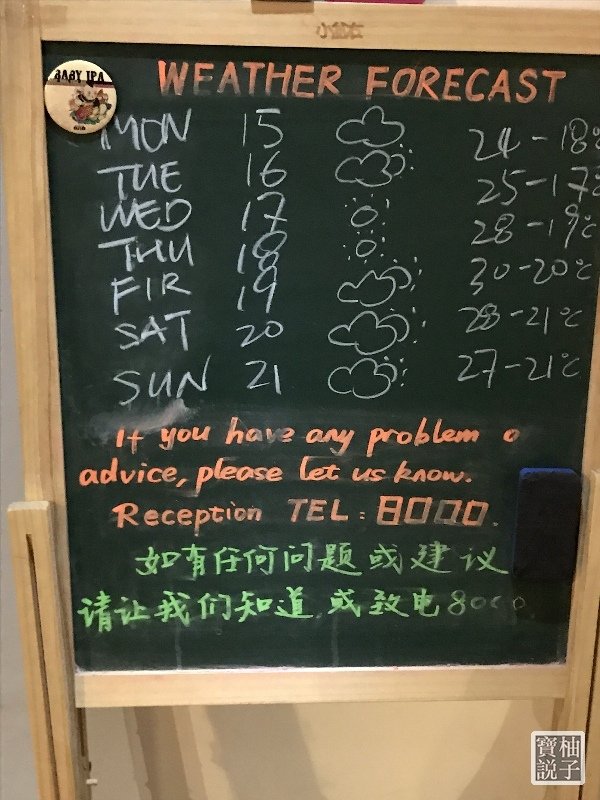 小飲在
BABY IPA
WEATHER FORECAST
MON 15 24-18°
TUE 16 25-17°C
WED 17 28-19°C
THU 18 30-20°C
FIR 19 28-21°C
SAT 20 27-21°C
SUN 21
If you have any problem o
advice, please let us know.
Reception TEL: 8000.
如有任何问题或建议
请让我们知道,或致电8000.
寶柚
說子